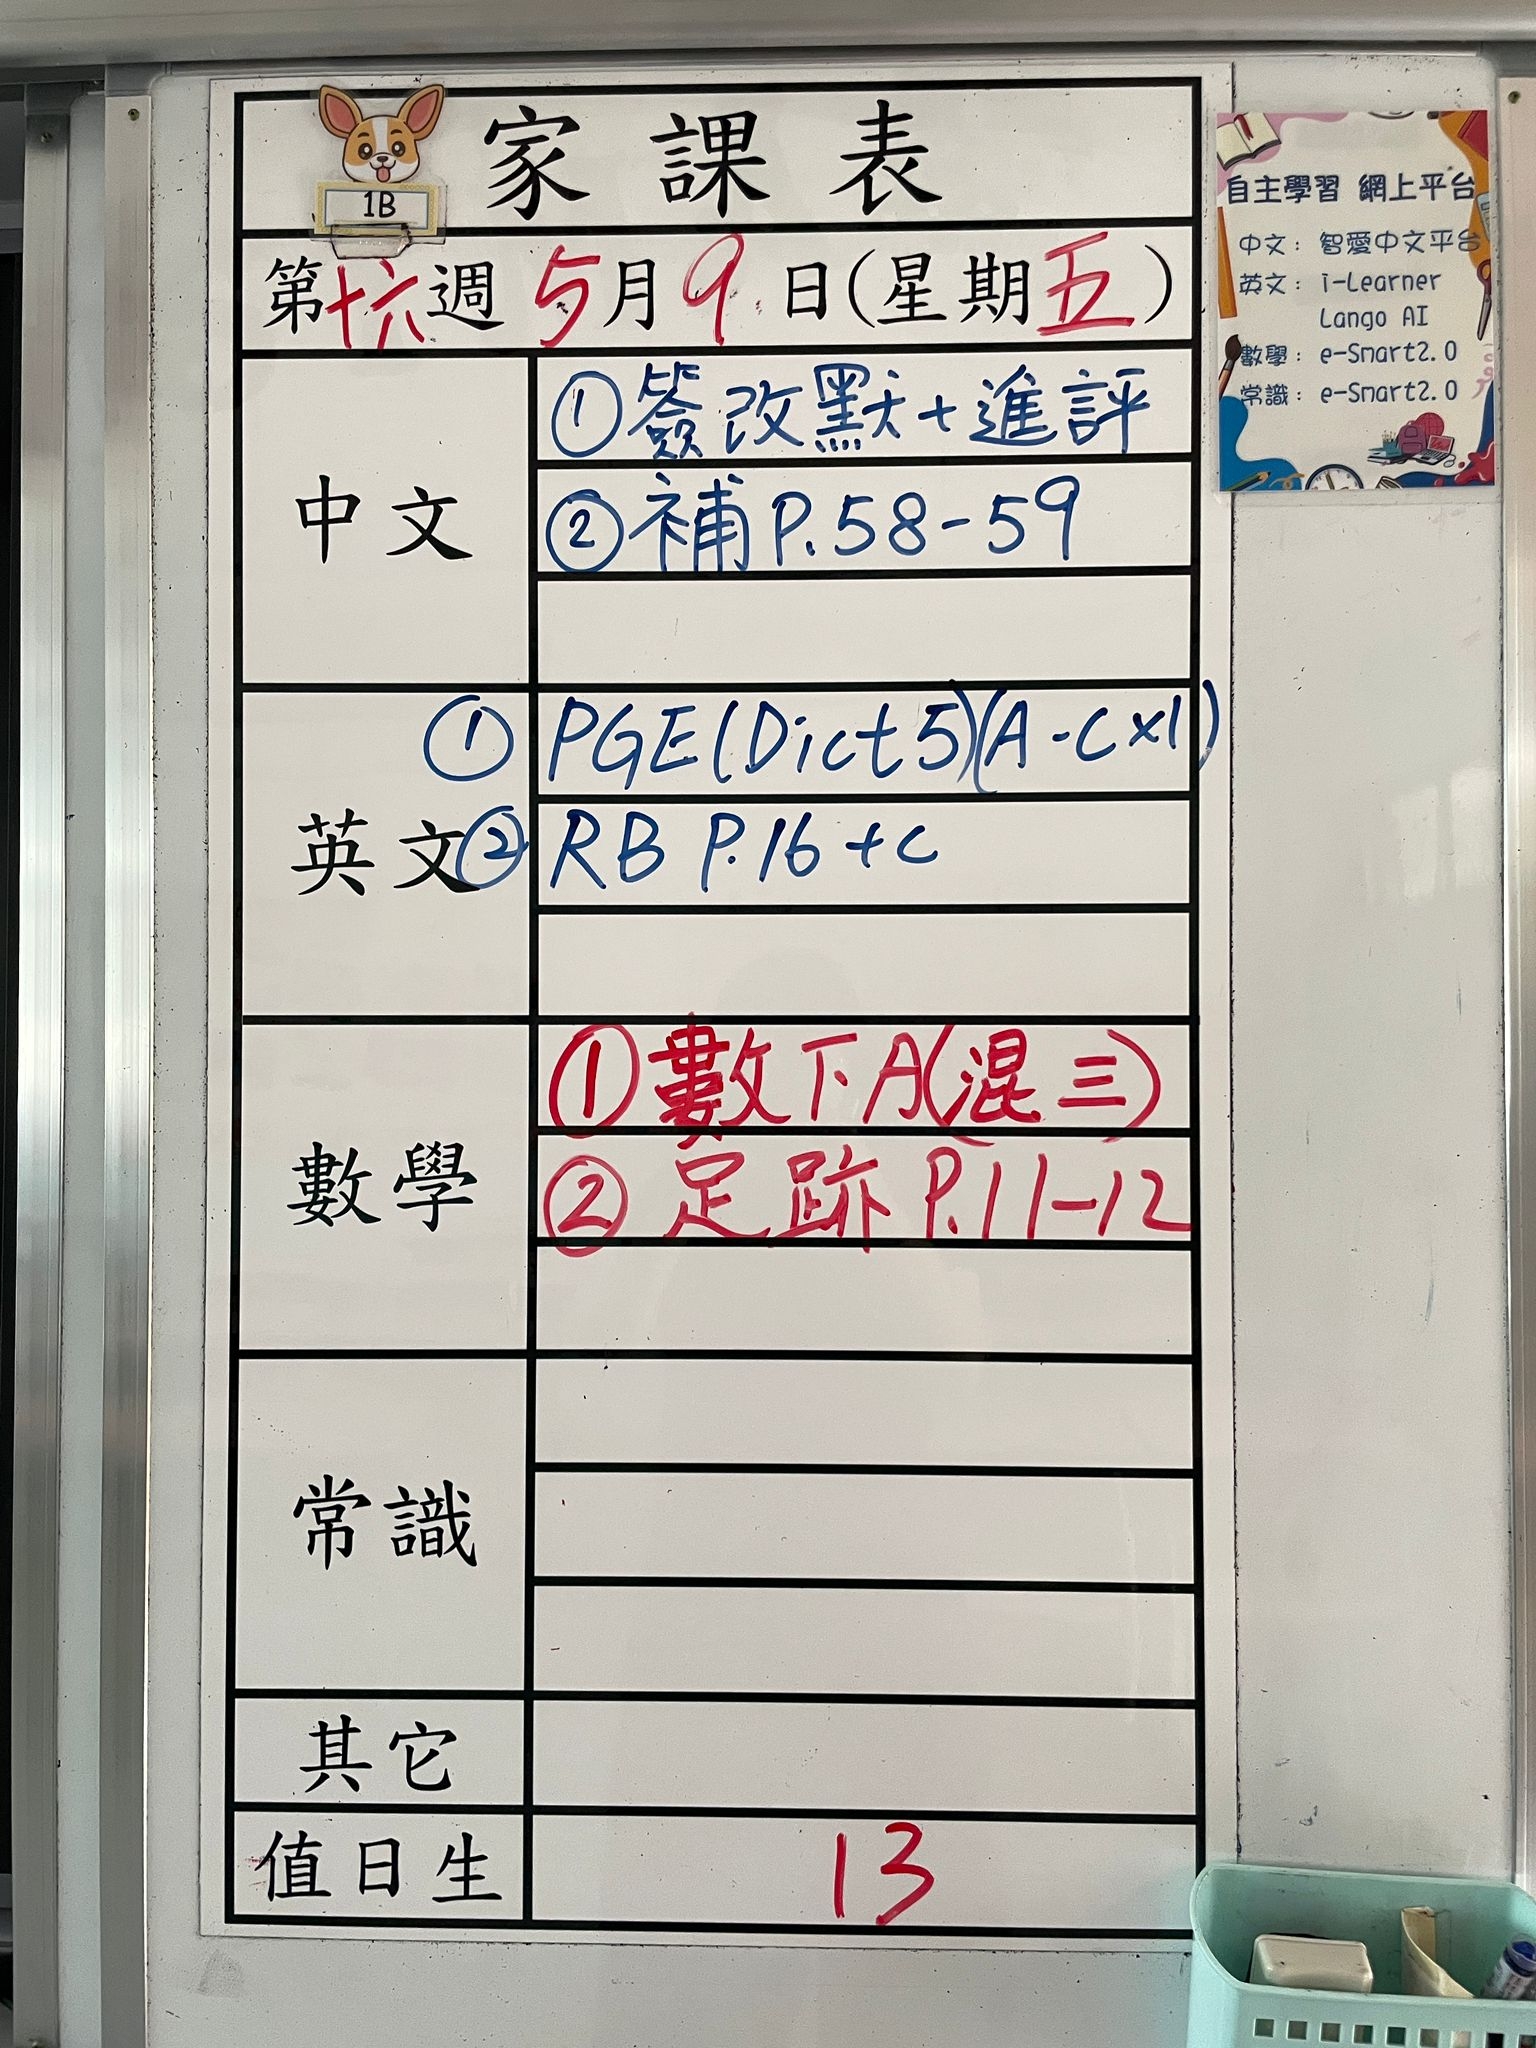 家課表
1B
第十六週 5月9日(星期五)
中文
①簽改默+進評
②補P.58-59
英文
① PGE(Dict 5)(A-C×1)
② RB P.16+c
數學
①數下A(混三)
②足跡P.11-12
常識
其它
值日生
13
自主學習 網上平台
中文: 智愛中文平台
英文: i-Learner
Lango AI
數學: e-Smart2.0
常識: e-Smart2.0